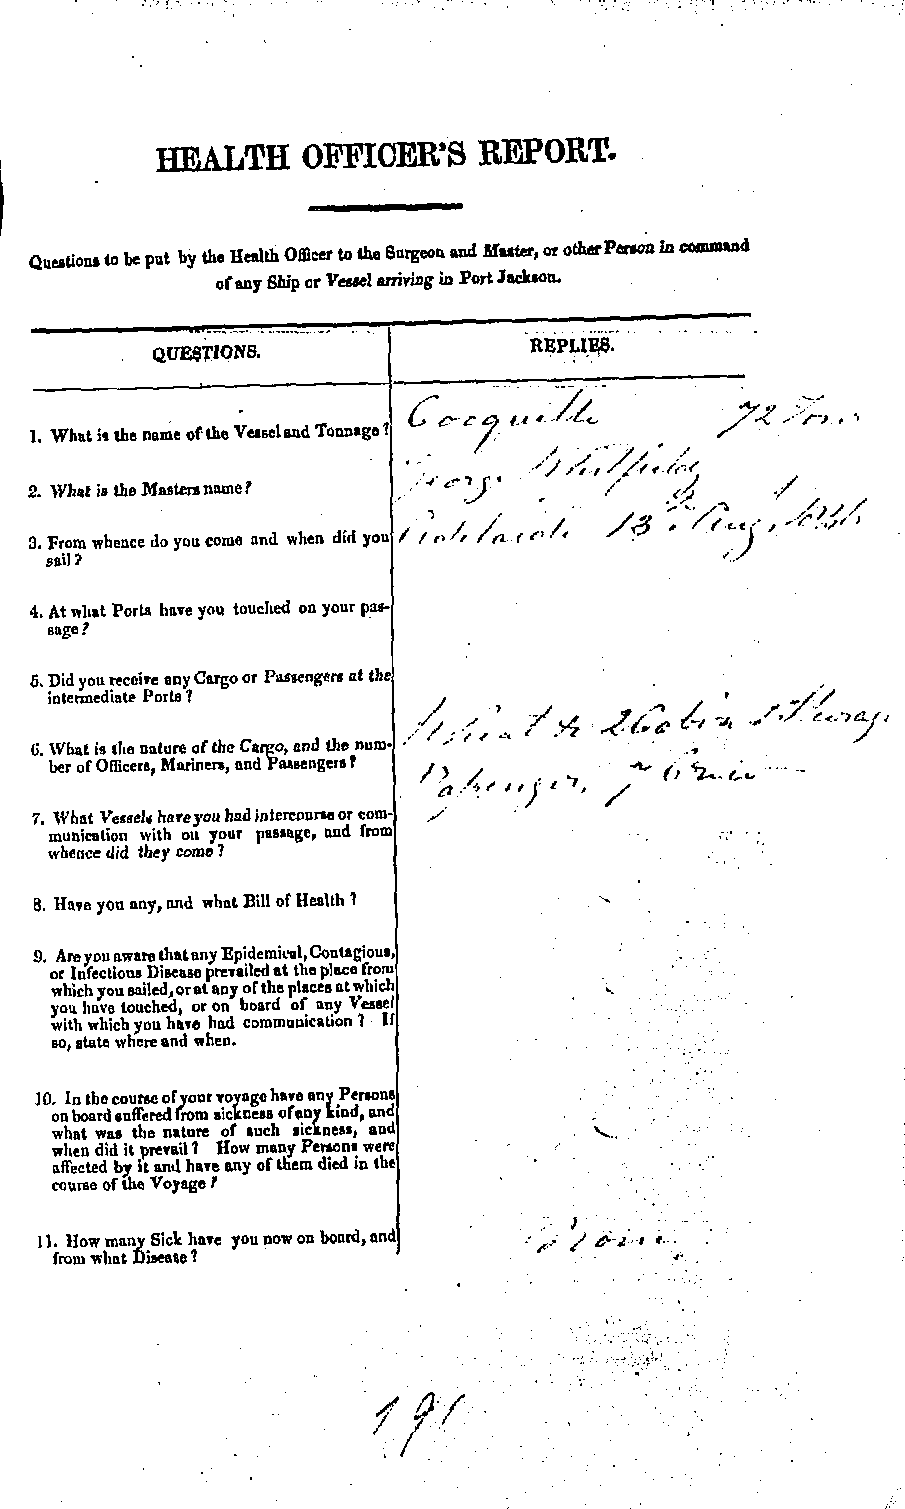 HEALTH OFFICER'S REPORT.
Questions to be put by the Health Officer to the Surgeon and Master, or other Person in command
of any Ship or Vessel arriving in Port Jackson.
QUESTIONS.
REPLIES.
1. What is the name of the Vessel and Tonnage?
Cocquille 72 Tons
2. What is the Masters name?
George Whitfield
3. From whence do you come and when did you
sail?
Adelaide 13th Augt
4. At what Ports have you touched on your pas-
sage?
5. Did you receive any Cargo or Passengers at the
intermediate Ports?
6. What is the nature of the Cargo, and the num-
ber of Officers, Mariners, and Passengers?
Wheat & 2 Cabin Steerage
Passenger 7 Crew
7. What Vessels have you had intercourse or com-
munication with on your passage, and from
whence did they come?
8. Have you any, and what Bill of Health?
9. Are you aware that any Epidemical, Contagious,
or Infectious Disease prevailed at the place from
which you sailed, or at any of the places at which
you have touched, or on board of any Vessel
with which you have had communication? If
so, state where and when.
10. In the course of your voyage have any Persons
on board suffered from sickness of any kind, and
what was the nature of such sickness, and
when did it prevail? How many Persons were
affected by it and have any of them died in the
course of the Voyage?
11. How many Sick have you now on board, and
from what Disease?
None
191